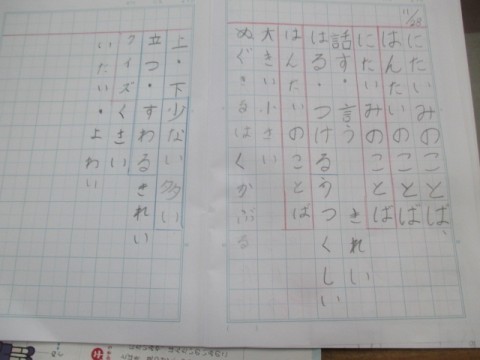 11/28
にたいみのことば、
はんたいのことば
にたいみのことば
話す・言う きれい
はる・つける うつくしい
はんたいのことば
大きい 小さい
ぬぐ きる はく かぶる
上・下 少ない 多い
立つ・すわる きれい
くさい
いたい・よわい